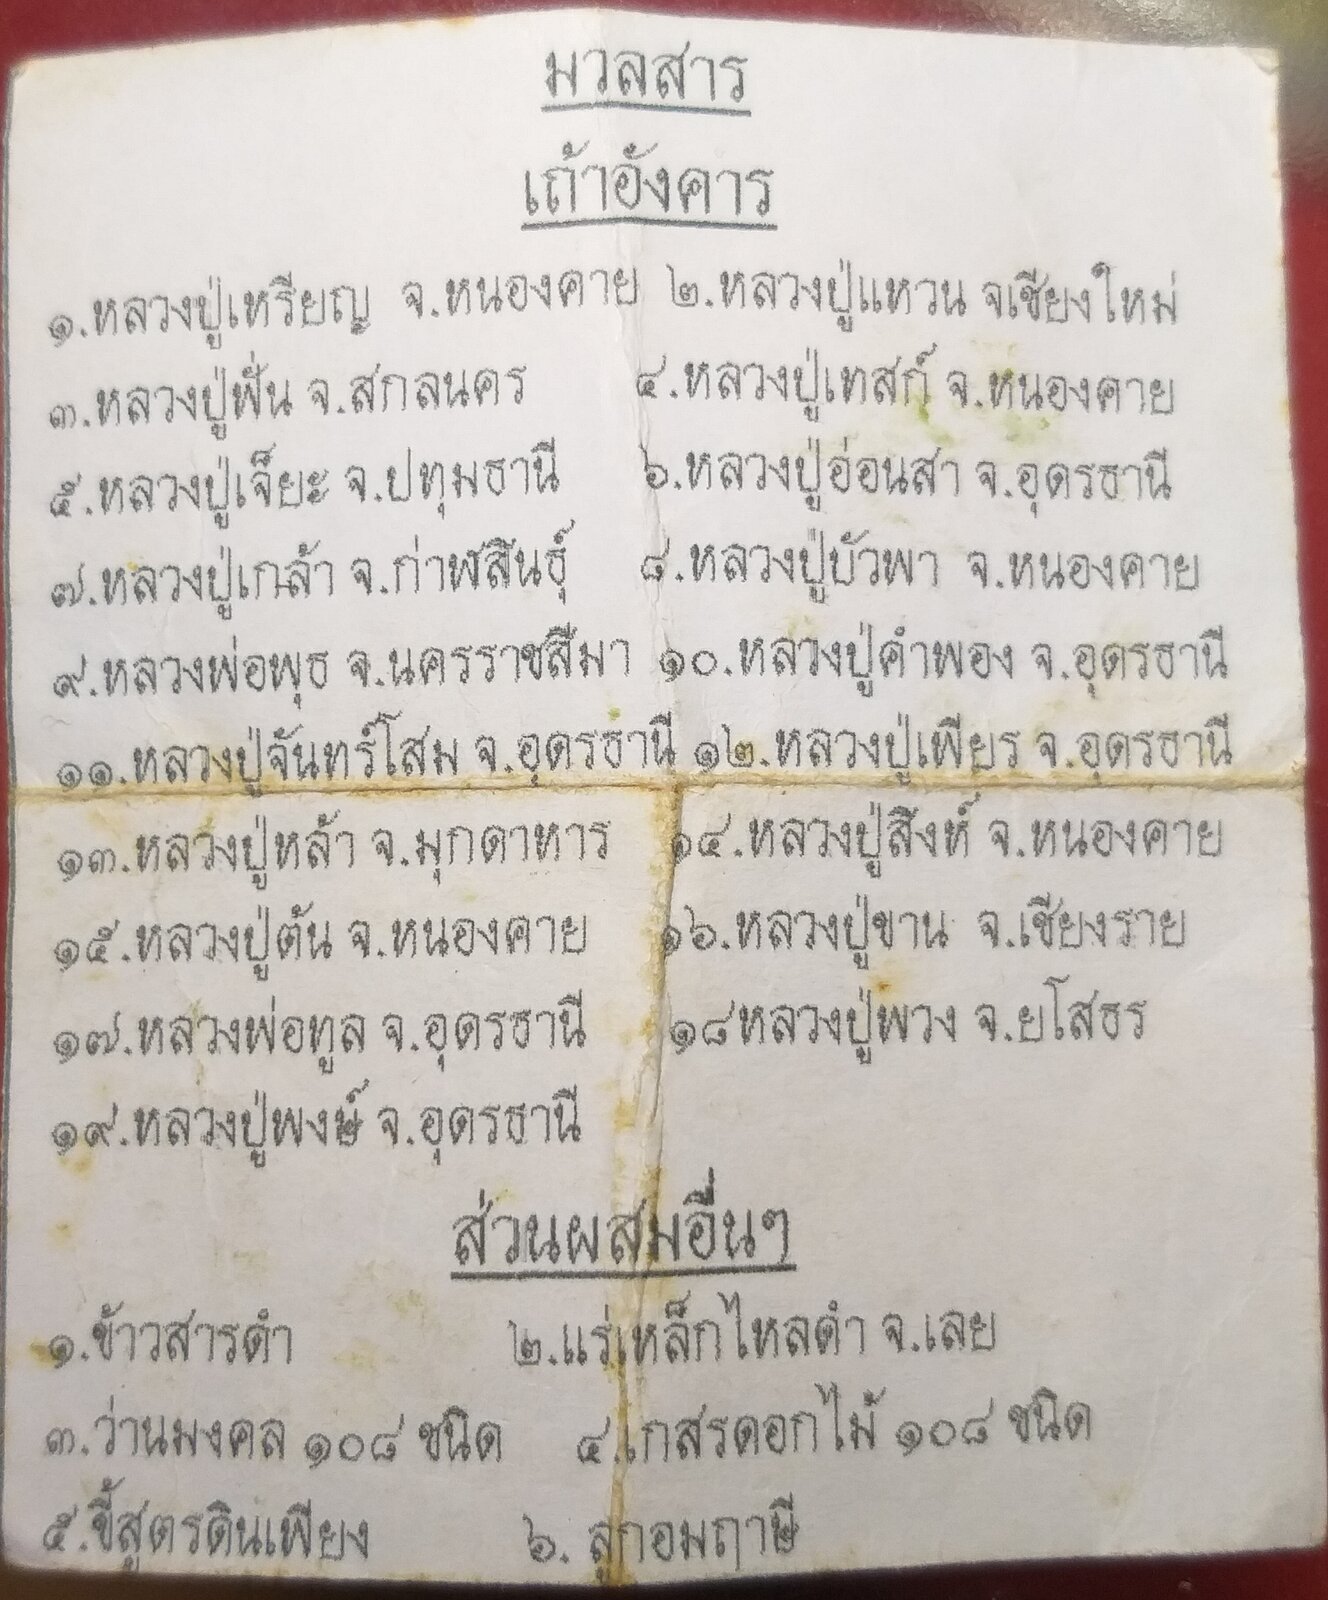 มวลสาร
เถ้าอังคาร
๑.หลวงปู่เหรียญ จ.หนองคาย ๒.หลวงปู่แหวน จเชียงใหม่
๓.หลวงปู่ฟั่น จ.สกลนคร ๔.หลวงปู่เทสก์ จ.หนองคาย
๕.หลวงปู่เจี๊ยะ จ.ปทุมธานี ๖.หลวงปู่อ่อนสา จ.อุดรธานี
๗.หลวงปู่เกล้า จ.ก่าฬสินธุ์ ๘.หลวงปู่บัวพา จ.หนองคาย
๙.หลวงพ่อพุธ จ.นครราชสีมา ๑๐.หลวงปู่คำพอง จ.อุดรธานี
๑๑.หลวงปู่จันทร์โสม จ.อุดรธานี ๑๒.หลวงปู่เพียร จ.อุดรธานี
๑๓.หลวงปู่หล้า จ.มุกดาหาร ๑๔.หลวงปู่สิงห์ จ.หนองคาย
๑๕.หลวงปู่ต้น จ.หนองคาย ๑๖.หลวงปู่ขาน จ.เชียงราย
๑๗.หลวงพ่อทูล จ.อุดรธานี ๑๘หลวงปู่พวง จ.ยโสธร
๑๙.หลวงปู่พงษ์ จ.อุดรธานี
ส่วนผสมอื่นๆ
๑.ข้าวสารดำ ๒.แร่เหล็กไหลดำ จ.เลย
๓.ว่านมงคล ๑๐๘ ชนิด ๔.เกสรดอกไม้ ๑๐๘ ชนิด
๕.ขี้สูตรดินเพียง ๖. ลูกอมฤาษี